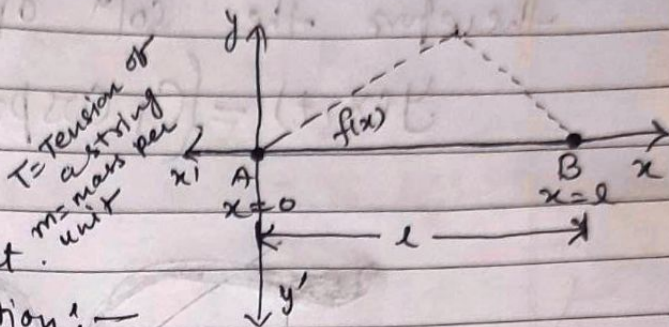 y
T= Tension of
a string
m= mass per
unit
f(x)
x' A B x
x=0 x=l
l
t.
y'
tion :—